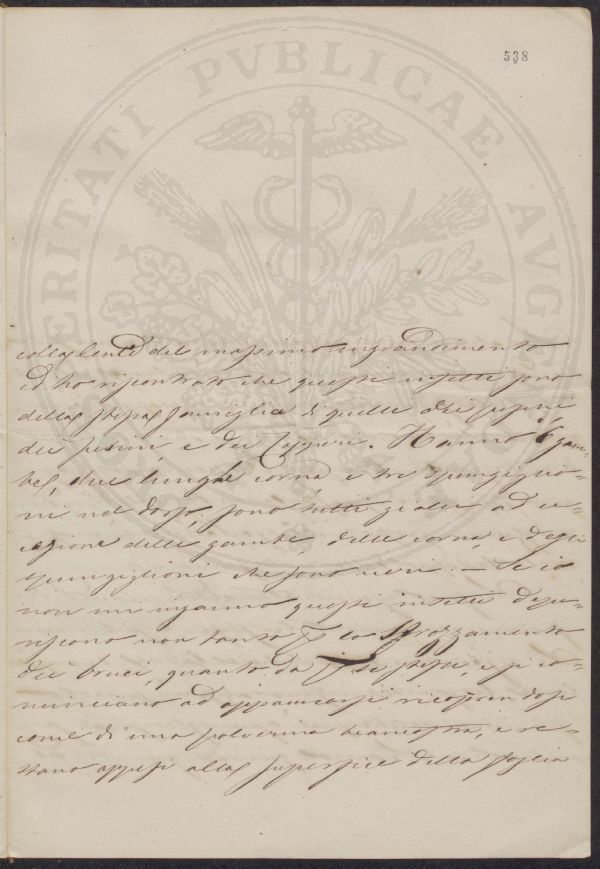 538
PVBLICAE
colla lente del massimo ingrandimento
ed ho riscontrato che questi insetti sono
della stessa famiglia di quelle dei
dei e dei Hanno 6 gam-
be, due lunghe corna, e tre spungiglio-
ni nel dosso, sono tutti gialli ad ec-
cezione delle gambe, delle corna, e degli
spungiglioni che sono neri. — Se io
non mi inganno questi insetti depe-
riscono non tanto p lo strozzamento
dei bruci, quanto da p se stessi, e si co-
minciano ad ricoprendosi
come di una polverina biancastra, e re-
stano appesi alla superfice della foglia